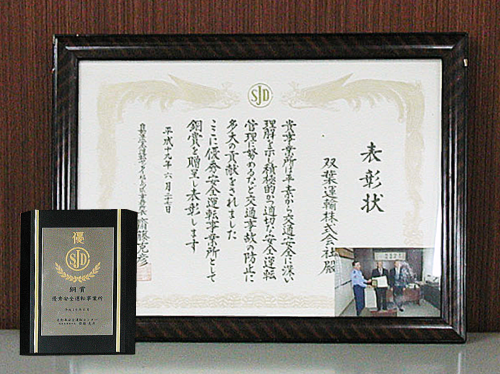 SJD
表彰状
双葉運輸株式会社殿
貴事業所は平素から交通安全に深い
理解を示し積極的かつ適切な安全運転
管理に努めるなど交通事故の防止に
多大の貢献をされました
ここに優秀安全運転事業所として
銅賞を贈呈し表彰します
平成十九年六月二十一日
自動車安全運転センター
優
SJD
銅賞
優秀安全運転事業所